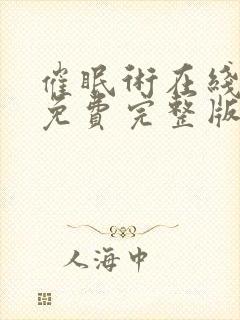 催眠术在线
免費完整版
人海中